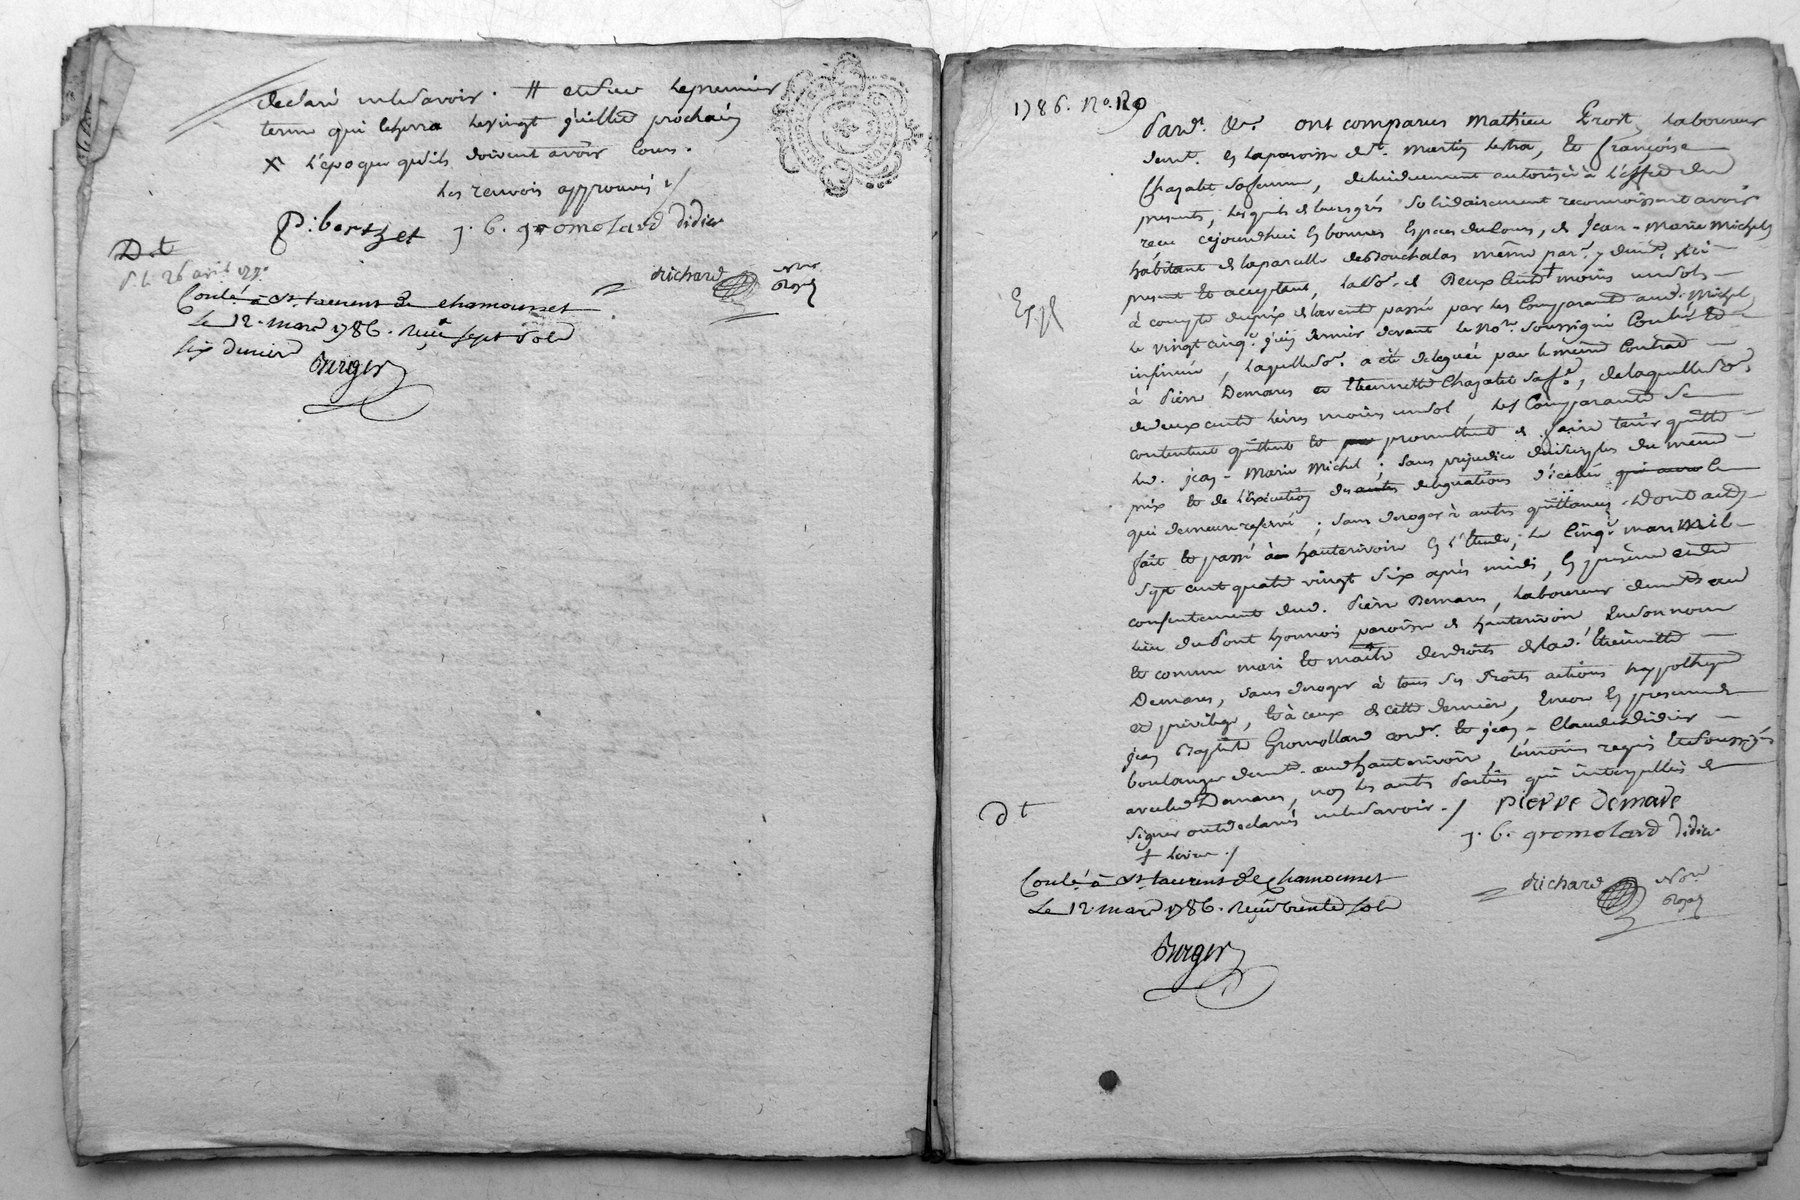 declaré ne le savoir. # et due le premier
terme qui echerra le vingt juillet prochain
x l'epoque qu'ils doivent avoir cours.
les renvois approuvés ./
P: bertzet j. b. gromoland didier
D.t
26 avril
richard nore Royal
Conlé à St. Laurent de chamousset
Le 12. mars 1786. Reçu sept sols
six deniers
Burger
1786. No. 120
Pard. &c. ont comparus Mathieu Grost, laboureur
demt. en la paroisse de St. Martin lestra, et françoise
Chazalet sa femme, deheüement autorisée à l'effet des
presents, lesquels de leurs grés solidairement reconnoissent avoir
recu cejourd'hui en bonnes espèces de cours, de Jean-Marie Michel
habitant de la parcelle de Bouchalas même par. y demt. ici
present et acceptant, la so. de Deux Cent † moins un sol
à compte du prix de la vente passée par les Comparants aud. Michel
le vingt cinq. juin dernier devant le no.re soussigné Conlé et
insinué, laquelle so. a été deleguée par le même Contrat
à Pierre Demares et Etiennette Chazalet sa fe., de laquelle so.
de deux cents livres moins un sol, les Comparants se
contentent quittent et promettent de faire tenir quitte
led. jean-Marie Michel; sans prejudice du surplus du même
prix et de l'execution des autres delegations d'icelui
qui demeure reservé; sans deroger à autres quittances. Dont acte
fait et passé à hauterivoire en l'étude, le Cinq mars Mil
sept cent quatre vingt six après midi, en présence et du
consentement dud. Pierre Demares, laboureur demt. au
lieu du Pont Lyonnois paroisse de hauterivoire, en son nom
et comme mari et maitre des droits de lad. Etiennette
Demares, sans deroger à tous ses droits actions hypotheque
et privilege, et à ceux de cette derniere, encore en presence de
jean Baptiste Gromolland cordr. et jean-Claude didier
boulanger demt. aud. hauterivoire, témoins requis et soussignés
avec led. Demares, non les autres Parties qui interpellées de
signer ont declarés ne le savoir ./ pierre demare
† livres ./ j. b. gromoland didier
Expé
d t
Conlé à St. Laurent de Chamousset
Le 12. mars 1786. Reçu trente sols
richard nore Royal
Burger